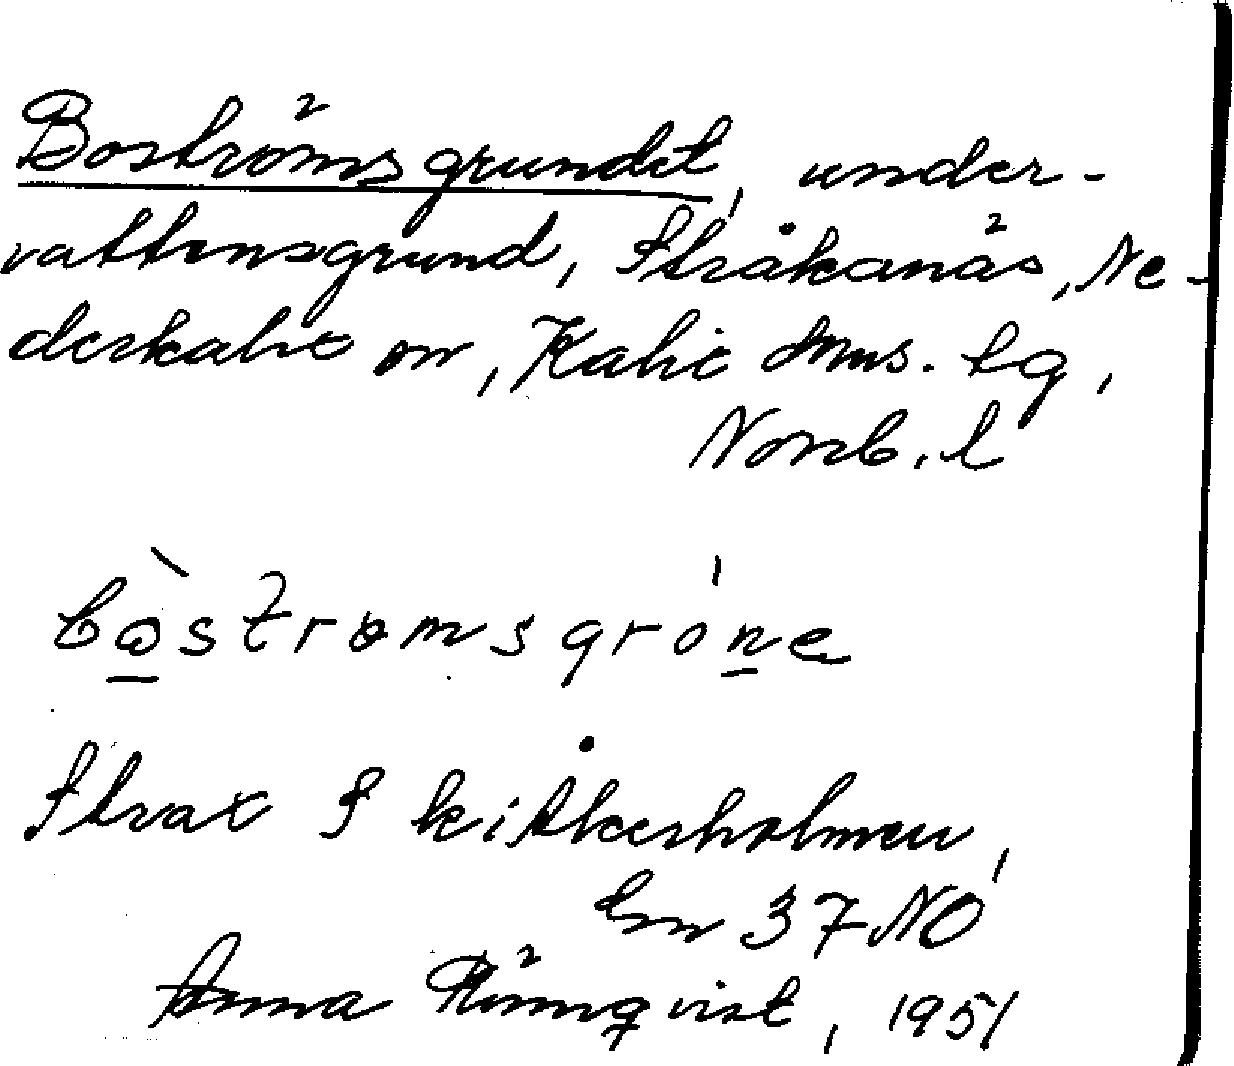 Boströmsgrundet, under-
vattensgrund, Stråkanäs, Ne-
derkalix sn, Kalix dms. tg,
Norrb. l
bòstrømsgrón̲e
Strax S
Gm 37 NO
Anna Rönnqvist, 1951